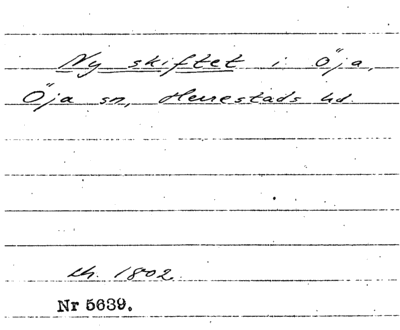 Ny skiftet i Öja,
Öja sn, Herrestads hd.
1802
Nr 5639.